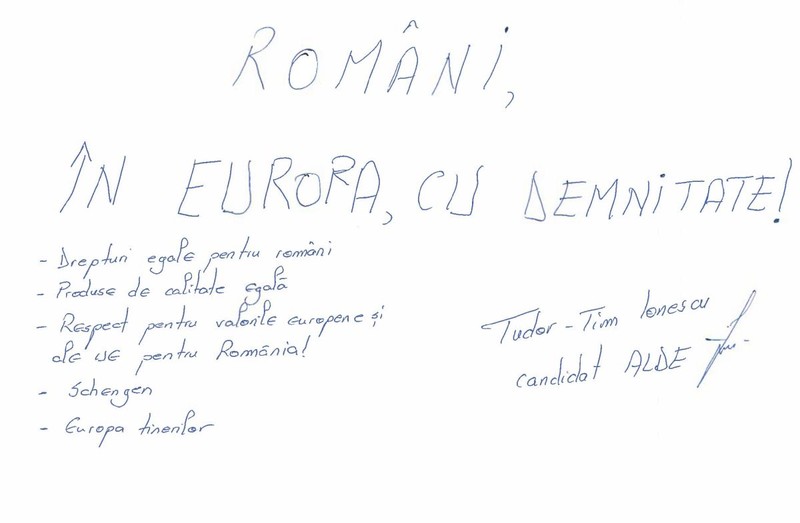 ROMÂNI,
ÎN EUROPA, CU DEMNITATE!
- Drepturi egale pentru români
- Produse de calitate egală
- Respect pentru valorile europene și
ale UE pentru România!
- Schengen
- Europa tinerilor
Tudor-Tim Ionescu
candidat ALDE